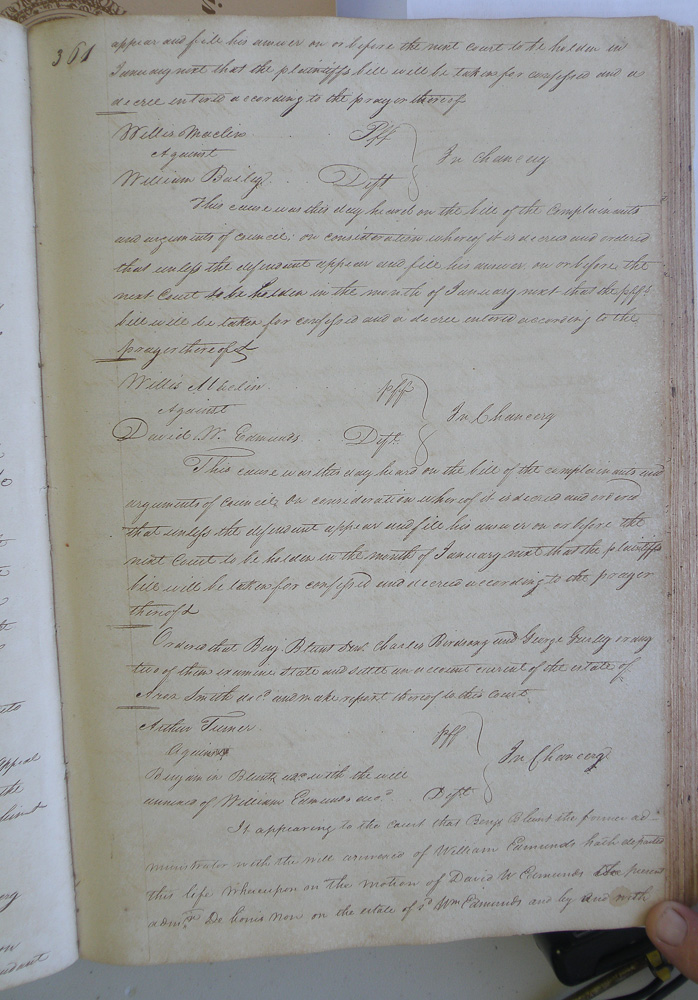 361
appear and file his answer on or before the next court to be holden in
January next that the plaintiffs bill will be taken for confessed and a
decree entered according to the prayer thereof
Willis Maclin Pff
Against In Chancery
William Baily Deft
This cause was this day heard on the bill of the Complainants
and arguments of council; on consideration whereof it is decreed and ordered
that unless the defendant appear and file his answer on or before the
next Court to be holden in the month of January next that the pffs
bill will be taken for confessed and a decree entered according to the
prayer thereof
Willis Maclin pff
Against In Chancery
David W. Edmunds Deft
This cause was this day heard on the bill of the complainants and
arguments of council, On consideration whereof it is decreed and ordered
that unless the defendant appear and file his answer on or before the
next Court to be holden in the month of January next that the plaintiffs
bill will be taken for confessed and decreed according to the prayer
thereof
Ordered that Benj. Blunt Charles Birdsong and George Gurley or any
two of them examine state and settle an account current of the estate of
Smith decd and make report thereof to this Court
Arthur Turner pff
Against In Chancery
Benjamin Blunt with the will
annexed of William Edmunds decd Deft
It appearing to the court that Benja Blunt the former ad-
ministrator with the will annexed of William Edmunds hath departed
this life Whereupon on the motion of David W Edmunds the present
admr De bonis non on the estate of sd Wm Edmunds and by and with